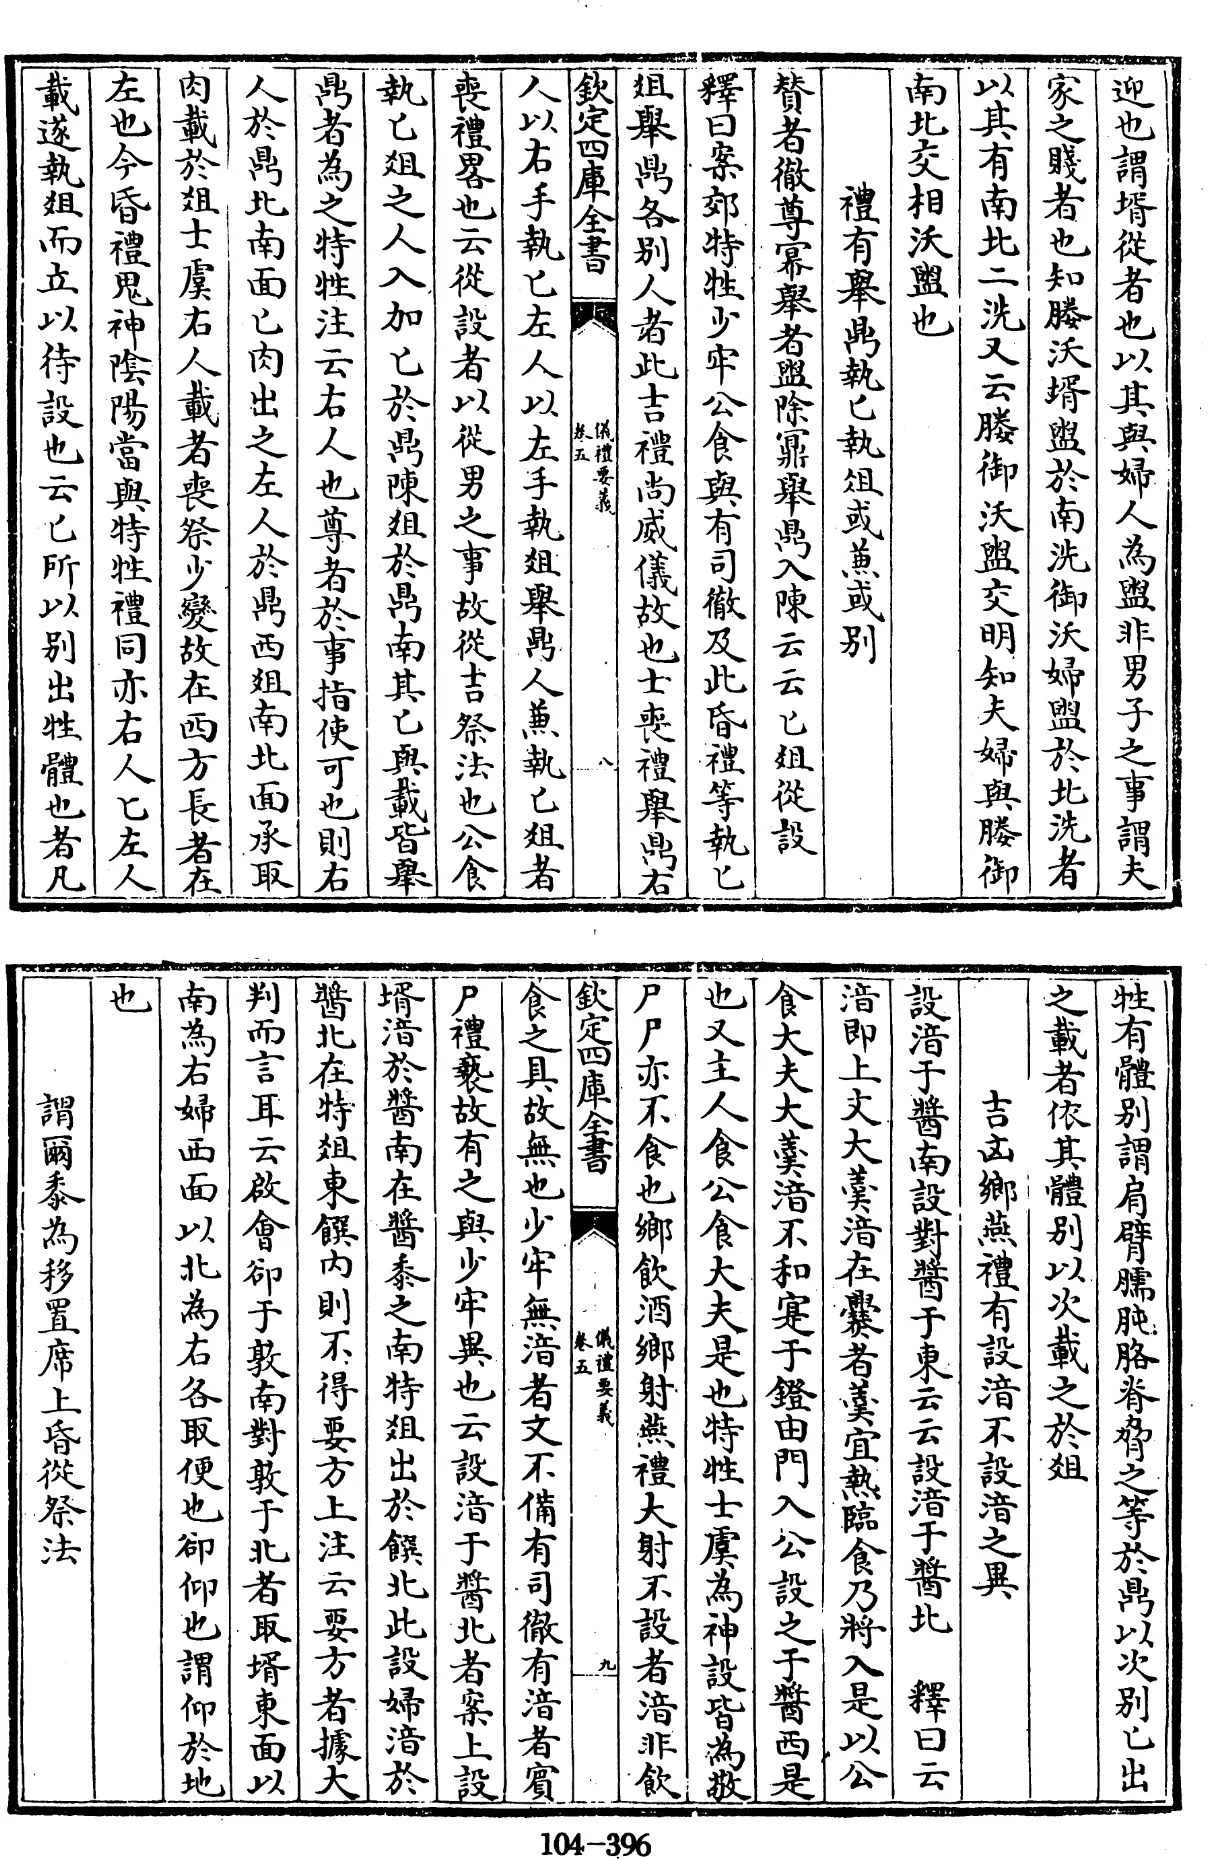 迎也謂壻從者也以其與婦人為盥非男子之事謂夫
家之賤者也知媵沃壻盥於南洗御沃婦盥於北洗者
以其有南北二洗又云媵御沃盥交明知夫婦與媵御
南北交相沃盥也
禮有舉鼎執匕執俎或兼或別
贊者徹尊冪舉者盥除鼏舉鼎入陳云云匕俎從設
釋曰案郊特牲少牢公食與有司徹及此昏禮等執匕
俎舉鼎各別人者此吉禮尚威儀故也士喪禮舉鼎右
欽定四庫全書
儀禮要義
卷五
八
人以右手執匕左人以左手執俎舉鼎人兼執匕俎者
喪禮畧也云從設者以從男之事故從吉祭法也公食
執匕俎之人入加匕於鼎陳俎於鼎南其匕與載皆舉
鼎者為之特牲注云右人也尊者於事指使可也則右
人於鼎北南面匕肉出之左人於鼎西俎南北面承取
肉載於俎士虞右人載者喪祭少變故在西方長者在
左也今昏禮鬼神陰陽當與特牲禮同亦右人匕左人
載遂執俎而立以待設也云匕所以別出牲體也者凡
牲有體別謂肩臂臑肫胳脊脅之等於鼎以次別匕出
之載者依其體別以次載之於俎
吉凶鄉燕禮有設湆不設湆之異
設湆于醬南設對醬于東云云設湆于醬北 釋曰云
湆即上文大羹湆在爨者羹宜熱臨食乃將入是以公
食大夫大羹湆不和寔于鐙由門入公設之于醬西是
也又主人食公食大夫是也特牲士虞為神設皆為敬
尸尸亦不食也鄉飲酒鄉射燕禮大射不設者湆非飲
欽定四庫全書
儀禮要義
卷五
九
食之具故無也少牢無湆者文不備有司徹有湆者賓
尸禮褻故有之與少牢異也云設湆于醬北者案上設
壻湆於醬南在醬黍之南特俎出於饌北此設婦湆於
醬北在特俎東饌內則不得要方上注云要方者據大
判而言耳云啟會卻于敦南對敦于北者取壻東面以
南為右婦西面以北為右各取便也卻仰也謂仰於地
也
謂爾黍為移置席上昏從祭法
104-396